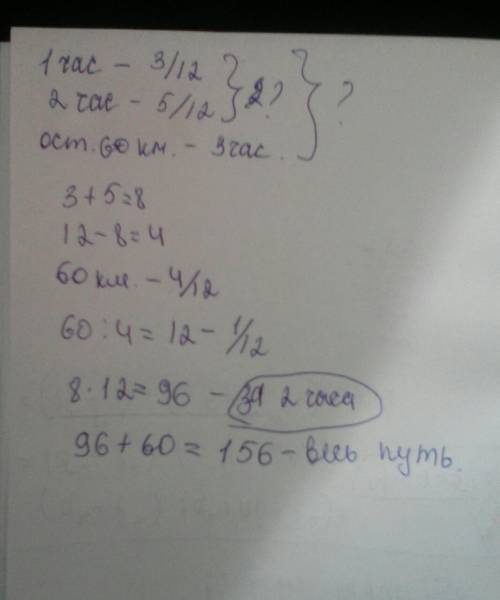 1 час – 3/12
2 час – 5/12 } 2? } ?
ост. 60 км. – 3 час.
3+5=8
12-8=4
60 км. – 4/12
60:4=12 – 1/12
8·12=96 – за 2 часа
96+60=156 – весь путь.